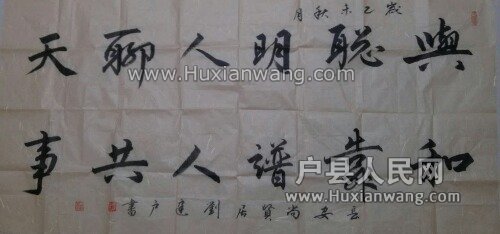 歲乙未秋月
與聪明人聊天
和靠譜人共事
長安尚賢居劉建户書
www.Huxianwang.com
www.Huxianwang.com
www.Huxianwang.com
户县人民网
huxianwang.com